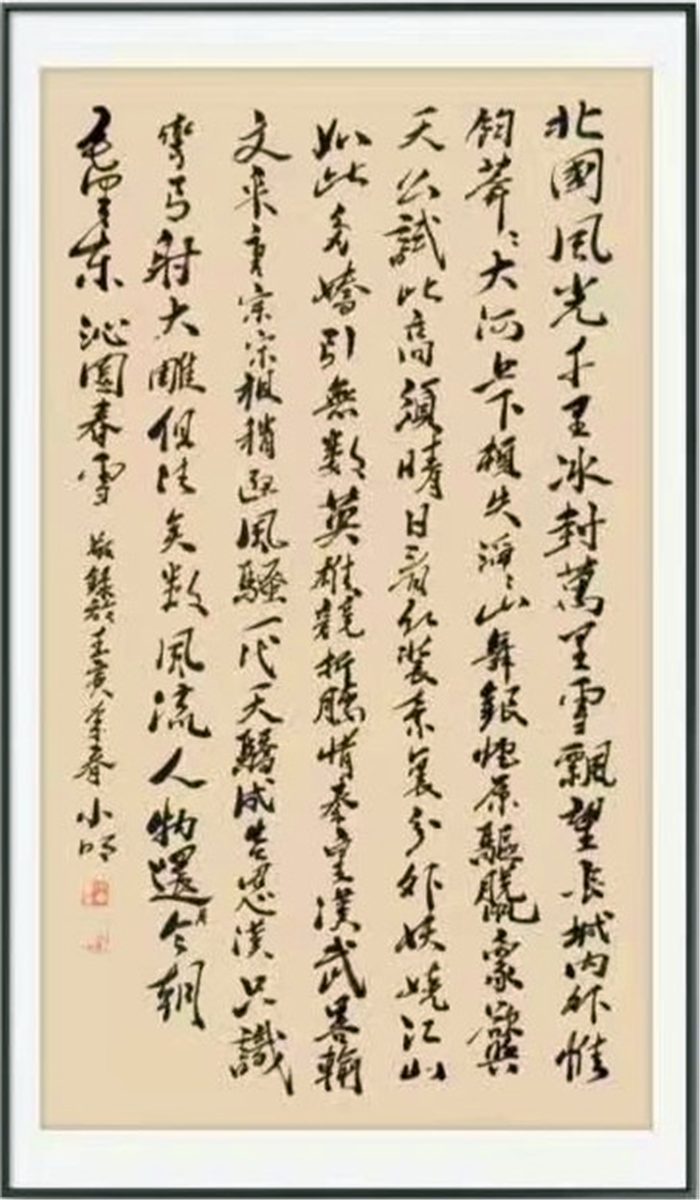 北國風光千里冰封萬里雪飄望长城内外惟
馀莽〻大河上下顿失滔〻山舞銀蛇原驅臘象欲與
天公試比高須晴日看红装素裹分外妖娆江山
如此多嬌引無数英雄競折腰惜秦皇漢武略輸
文采唐宗宋祖稍逊風騷一代天驕成吉思漢只識
彎弓射大雕俱往矣数風流人物還看今朝
毛澤东沁園春雪 敬錄於壬寅年春 小明